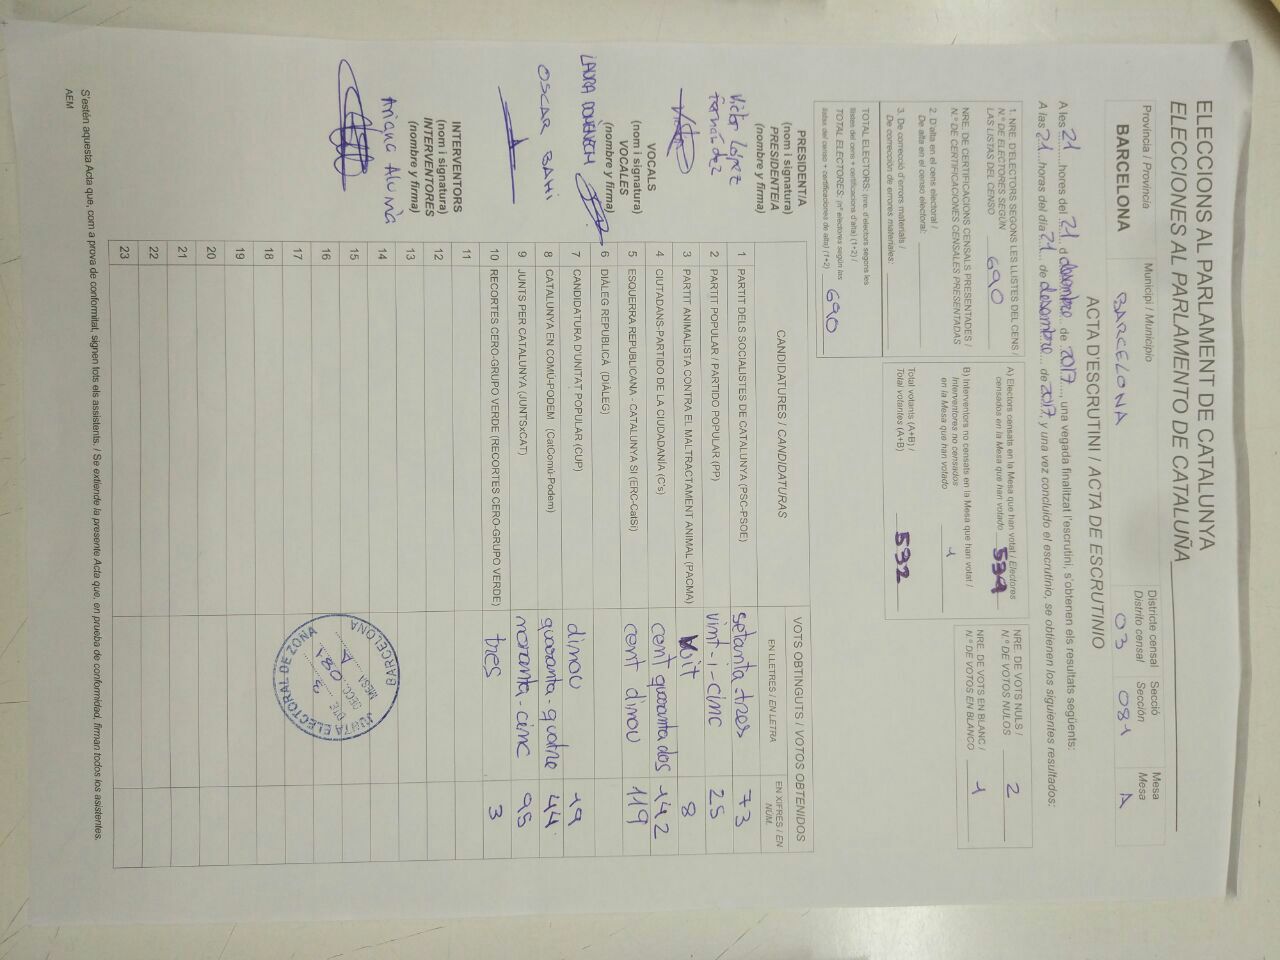 ELECCIONS AL PARLAMENT DE CATALUNYA
ELECCIONES AL PARLAMENTO DE CATALUÑA
Província / Provincia
BARCELONA
Municipi / Municipio
BARCELONA
Districte censal
Distrito censal
03
Secció
Sección
081
Mesa
Mesa
A
ACTA D'ESCRUTINI / ACTA DE ESCRUTINIO
A les 21 hores del 21 d desembre de 2017, una vegada finalitzat l'escrutini, s'obtenen els resultats següents:
A las 21 horas del día 21 de desembre de 2017, y una vez concluido el escrutinio, se obtienen los siguientes resultados:
1. NRE. D'ELECTORS SEGONS LES LLISTES DEL CENS /
N.º DE ELECTORES SEGÚN
LAS LISTAS DEL CENSO 690
NRE. DE CERTIFICACIONS CENSALS PRESENTADES /
N.º DE CERTIFICACIONES CENSALES PRESENTADAS
2. D'alta en el cens electoral /
De alta en el censo electoral:
3. De correcció d'errors materials /
De corrección de errores materiales:
TOTAL ELECTORS: (nre. d'electors segons les
llistes del cens + certificacions d'alta) (1+2) /
TOTAL ELECTORES: (nº electores según las
listas del censo + certificaciones de alta) (1+2) 690
A) Electors censats en la Mesa que han votat / Electores
censados en la Mesa que han votado 591
B) Interventors no censats en la Mesa que han votat /
Interventores no censados
en la Mesa que han votado 1
Total votants (A+B) /
Total votantes (A+B) 592
NRE. DE VOTS NULS /
N.º DE VOTOS NULOS 2
NRE. DE VOTS EN BLANC /
N.º DE VOTOS EN BLANCO 1
PRESIDENT/A
(nom i signatura)
PRESIDENTE/A
(nombre y firma)
Victor López
Fernández
VOCALS
(nom i signatura)
VOCALES
(nombre y firma)
LAURA DOMENECH
OSCAR BAHI
INTERVENTORS
(nom i signatura)
INTERVENTORES
(nombre y firma)
Ariana Alumà
CANDIDATURES / CANDIDATURAS
VOTS OBTINGUTS / VOTOS OBTENIDOS
EN LLETRES / EN LETRA
EN XIFRES / EN NÚM.
1 PARTIT DELS SOCIALISTES DE CATALUNYA (PSC-PSOE) setanta-tres 73
2 PARTIT POPULAR / PARTIDO POPULAR (PP) vint-i-cinc 25
3 PARTIT ANIMALISTA CONTRA EL MALTRACTAMENT ANIMAL (PACMA) vuit 8
4 CIUTADANS-PARTIDO DE LA CIUDADANÍA (C's) cent quaranta dos 142
5 ESQUERRA REPUBLICANA - CATALUNYA SÍ (ERC-CatSí) cent dinou 119
6 DIÀLEG REPUBLICÀ (DIÀLEG)
7 CANDIDATURA D'UNITAT POPULAR (CUP) dinou 19
8 CATALUNYA EN COMÚ-PODEM (CatComú-Podem) quaranta-quatre 44
9 JUNTS PER CATALUNYA (JUNTSxCAT) noranta-cinc 95
10 RECORTES CERO-GRUPO VERDE (RECORTES CERO-GRUPO VERDE) tres 3
11
12
13
14
15
16
17
18
19
20
21
22
23
JUNTA ELECTORAL DE ZONA
BARCELONA
DTE. 3
SECC. 081
MESA A
S'estén aquesta Acta que, com a prova de conformitat, signen tots els assistents. / Se extiende la presente Acta que, en prueba de conformidad, firman todos los asistentes.
AEM